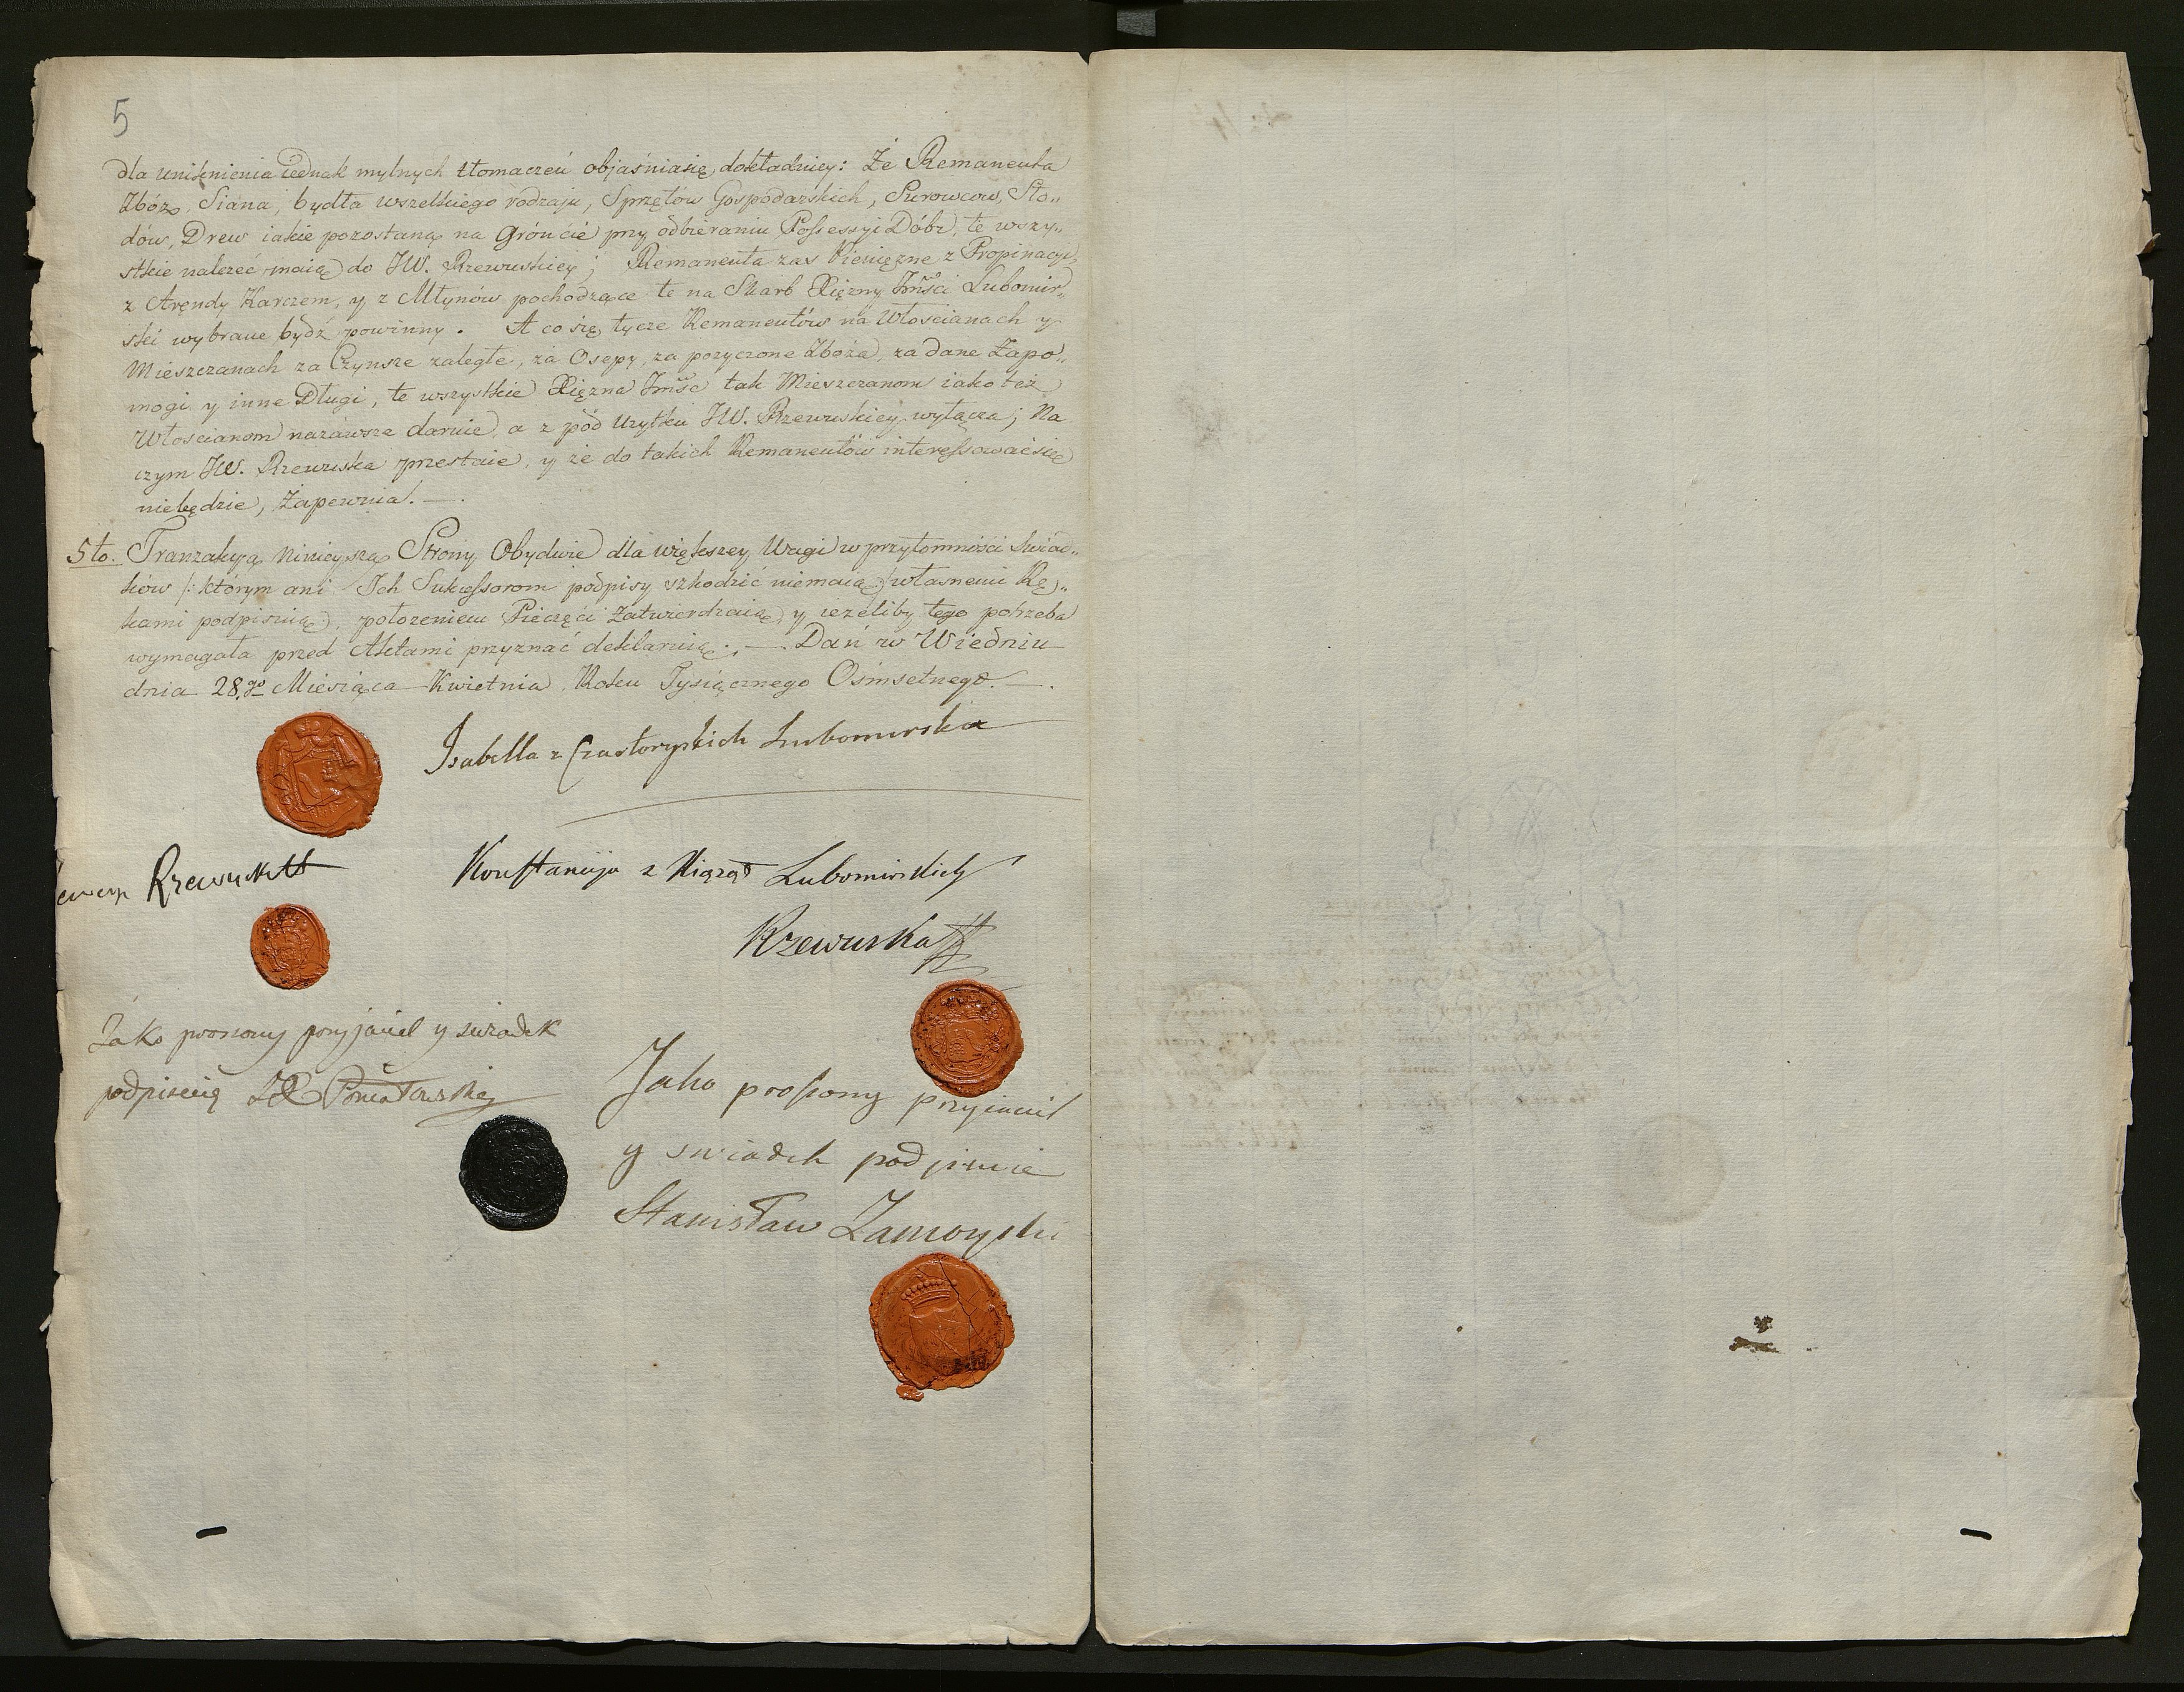 5
dla uniknienia iednak mylnych tłomaczeń objaśnia się dokładniey: Że Remanenta
Zbóż, Siana, bydła wszelkiego rodzaju, Sprzętow Gospodarskich, Surowcow, Sło„
dów, Drew iakie pozostaną na Gróńcie przy odbieraniu Possessyi Dóbr, te wszy„
stkie należeć maią do JW. Rzewuskiey; Remanenta zas Pieniężne z Propinacji,
z Arendy Karczem, y z Młynów pochodzące te na Skarb Xiężny Jmści Lubomir„
ski wybrane bydź powinny. A co się tycze Remanentów na Włoscianach y
Mieszczanach za Czynsze zaległe, za Osepy, za pozyczone Zboża, za dane Zapo„
mogi y inne Długi, te wszystkie Xiężna Jmść tak Mieszczanom iako też
Włoscianom nazawsze daruie, a z pód Użytku JW. Rzewuskiey wyłącza; Na
czym JW. Rzewuska przestaie, y że do takich Remanentów interessować się
niebędzie, Zapewnia. —.
5to. Tranzakcyą ninieyszą Strony Obydwie dla większey Wagi w przytomności Swiad„
ków /: którym ani Ich Sukcessorom podpisy szkodzić niemaią :/ własnemi Rę„
kami podpisuią, położeniem Pieczęci Zatwierdzaią, y ieżeliby tego potrzeba
wymagała przed Aktami przyznać deklaruią. —. Dań w Wiedniu
dnia 28.go Miesiąca Kwietnia, Roku Tysiącznego Ośmsetnego. —.
Isabella z Czartoryskich Lubomirska
Rzewuski
Konstancija z Xiążąt Lubomirskich
Rzewuska
Jako proszony przyjaciel y swiadek
podpisuię Poniatowski
Jako proszony przyiaciel
y swiadek podpisuie
Stanisław Zamoyski